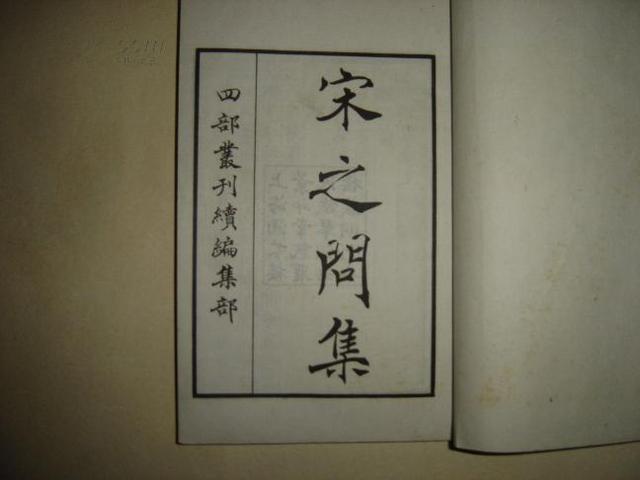 宋之問集
四部叢刊續編集部